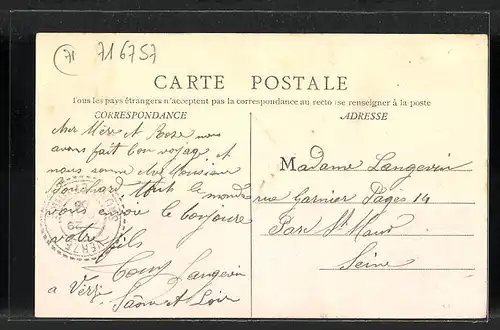 71
716757
CARTE POSTALE
Tous les pays étrangers n'acceptent pas la correspondance au recto (se renseigner à la poste
CORRESPONDANCE
ADRESSE
cher Mère et Rose nous
avons fait bon voyage et
nous somme chez Monsieur
Bouchard tout le monde
vous envoie le bonjour
votre fils
Langevin
a Verze
Saône et Loir
Madame Langevin
rue Garnier Pages 14
Parc St Maur
Seine